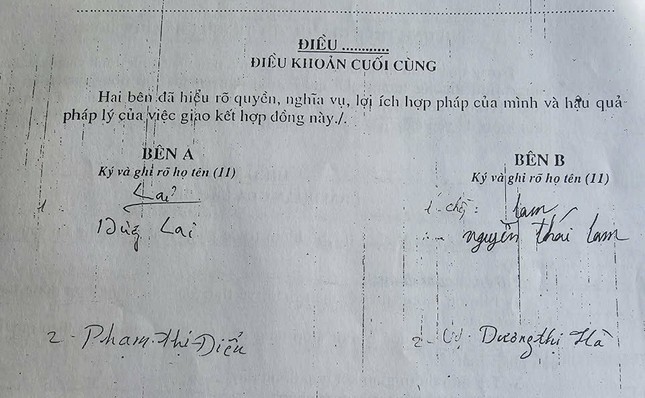 ĐIỀU ............
ĐIỀU KHOẢN CUỐI CÙNG
Hai bên đã hiểu rõ quyền, nghĩa vụ, lợi ích hợp pháp của mình và hậu quả
pháp lý của việc giao kết hợp đồng này./.
BÊN A
Ký và ghi rõ họ tên (11)
Lai
Dũng Lai
2 - Phạm Thị Diểu
BÊN B
Ký và ghi rõ họ tên (11)
1 - chồng: Lam
nguyễn thái Lam
2 - Vợ. Dương thị Hà